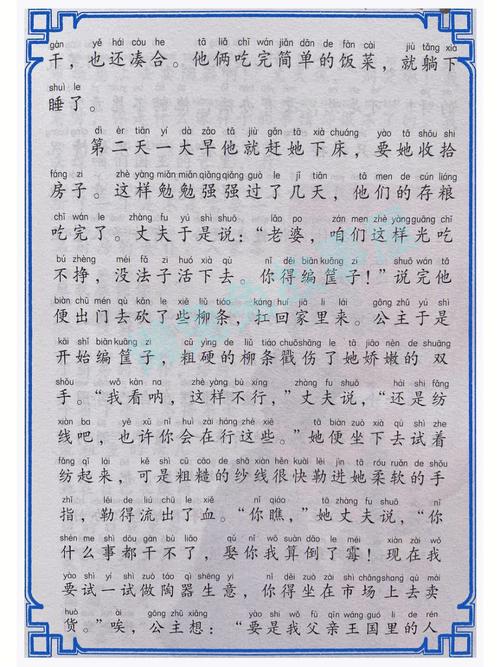 gàn yě hái còu he tā liǎ chī wán jiǎn dān de fàn cài jiù tǎng xià
干，也还凑合。他俩吃完简单的饭菜，就躺下
shuì le
睡了。
dì èr tiān yí dà zǎo tā jiù gǎn tā xià chuáng yào tā shōu shi
第二天一大早他就赶她下床，要她收拾
fáng zi zhè yàng miǎn miǎn qiǎng qiǎng guò le jǐ tiān tā men de cún liáng
房子。这样勉勉强强过了几天，他们的存粮
chī wán le zhàng fu yú shì shuō lǎo po zán men zhè yàng guāng chī
吃完了。丈夫于是说：“老婆，咱们这样光吃
bú zhèng méi fǎ zi huó xià qù nǐ děi biān kuāng zi shuō wán tā
不挣，没法子活下去 你得编筐子！”说完他
biàn chū mén qù kǎn le xiē liǔ tiáo káng huí jiā li lái gōng zhǔ yú shì
便出门去砍了些柳条，扛回家里来。公主于是
kāi shǐ biān kuāng zi cū yìng de liǔ tiáo chuō shāng le tā jiāo nèn de shuāng
开始编筐子，粗硬的柳条戳伤了她娇嫩的 双
shǒu wǒ kàn na zhè yàng bù xíng zhàng fu shuō hái shi fǎng
手。“我看呐，这样不行，”丈夫说，“还是纺
xiàn ba yě xǔ nǐ huì zài háng zhè xiē tā biàn zuò xià qù shì zhe
线吧，也许你会在行这些。”她便坐下去试着
fǎng qǐ lái kě shì cū cāo de shā xiàn hěn kuài lēi jìn tā róu ruǎn de shǒu
纺起来，可是粗糙的纱线很快勒进她柔软的手
zhǐ lēi de liú chū le xiě nǐ qiáo tā zhàng fu shuō nǐ
指，勒得流出了血。“你瞧，”她丈夫说，“你
shén me shì dōu gàn bù liǎo qǔ nǐ wǒ suàn dǎo le méi xiàn zài wǒ
什么事都干不了，娶你我算倒了霉！现在我
yào shì yi shì zuò táo qì shēng yi nǐ děi zuò zài shì chǎng shang qù mài
要试一试做陶器生意，你得坐在市场上去卖
huò ài gōng zhǔ xiǎng yào shì wǒ fù qīn wáng guó li de rén
货。”唉，公主想：“要是我父亲王国里的人